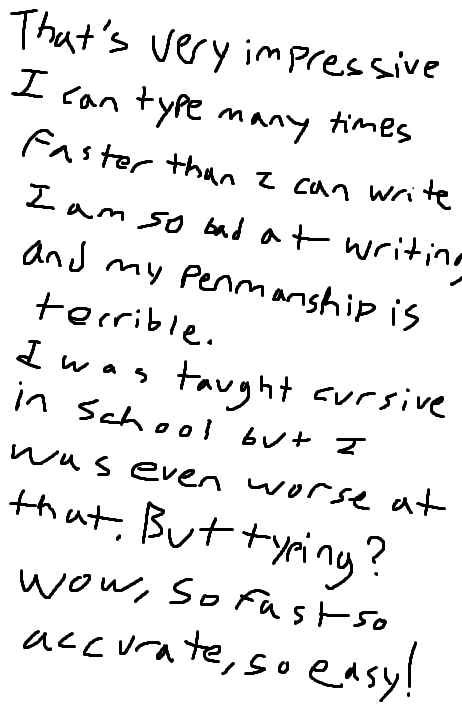 That's very impressive
I can type many times
faster than I can write
I am so bad at writing
and my penmanship is
terrible.
I was taught cursive
in school but I
was even worse at
that. But typing?
Wow, so fast so
accurate, so easy!